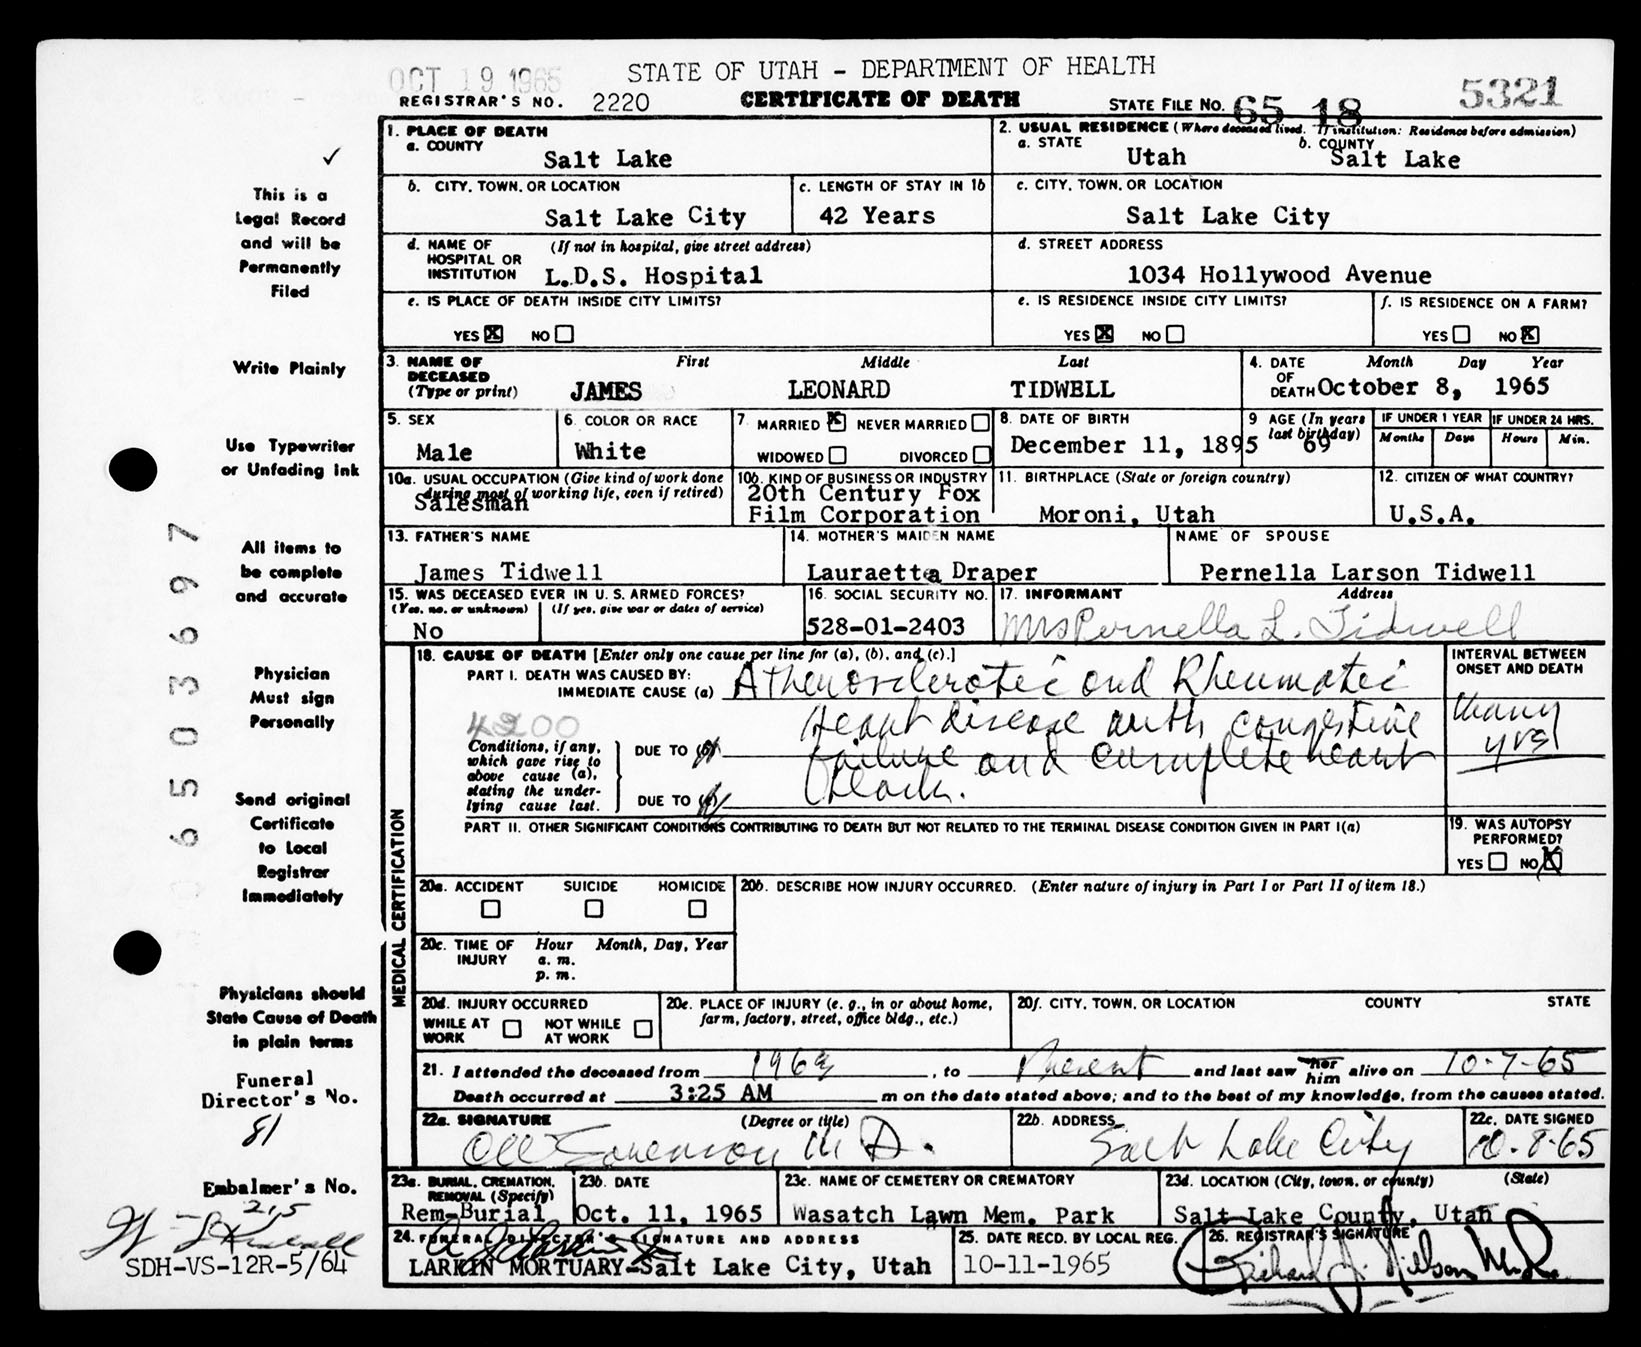 OCT 19 1965
STATE OF UTAH - DEPARTMENT OF HEALTH
REGISTRAR'S NO. 2220 CERTIFICATE OF DEATH STATE FILE NO. 65 18 5321
1. PLACE OF DEATH
a. COUNTY
Salt Lake
2. USUAL RESIDENCE (Where deceased lived. If institution: Residence before admission)
a. STATE b. COUNTY
Utah Salt Lake
b. CITY, TOWN, OR LOCATION
Salt Lake City
c. LENGTH OF STAY IN 1b
42 Years
c. CITY, TOWN, OR LOCATION
Salt Lake City
d. NAME OF HOSPITAL OR INSTITUTION (If not in hospital, give street address)
L.D.S. Hospital
d. STREET ADDRESS
1034 Hollywood Avenue
e. IS PLACE OF DEATH INSIDE CITY LIMITS?
YES X NO
e. IS RESIDENCE INSIDE CITY LIMITS?
YES X NO
f. IS RESIDENCE ON A FARM?
YES NO X
3. NAME OF DECEASED (Type or print) First Middle Last
JAMES LEONARD TIDWELL
4. DATE OF DEATH Month Day Year
October 8, 1965
5. SEX
Male
6. COLOR OR RACE
White
7. MARRIED X NEVER MARRIED
WIDOWED DIVORCED
8. DATE OF BIRTH
December 11, 1895
9 AGE (In years last birthday)
69
IF UNDER 1 YEAR IF UNDER 24 HRS.
Months Days Hours Min.
10a. USUAL OCCUPATION (Give kind of work done during most of working life, even if retired)
Salesman
10b. KIND OF BUSINESS OR INDUSTRY
20th Century Fox
Film Corporation
11. BIRTHPLACE (State or foreign country)
Moroni, Utah
12. CITIZEN OF WHAT COUNTRY?
U.S.A.
13. FATHER'S NAME
James Tidwell
14. MOTHER'S MAIDEN NAME
Lauraetta Draper
NAME OF SPOUSE
Pernella Larson Tidwell
15. WAS DECEASED EVER IN U.S. ARMED FORCES?
(Yes, no, or unknown) (If yes, give war or dates of service)
No
16. SOCIAL SECURITY NO.
528-01-2403
17. INFORMANT Address
Mrs Pernella L. Tidwell
MEDICAL CERTIFICATION
18. CAUSE OF DEATH [Enter only one cause per line for (a), (b), and (c).]
PART I. DEATH WAS CAUSED BY:
IMMEDIATE CAUSE (a) Atherosclerotic and Rheumatic
4200
Heart disease with congestive
Conditions, if any, which gave rise to above cause (a), stating the underlying cause last.
DUE TO (b) failure and complete heart
DUE TO (c) block.
INTERVAL BETWEEN ONSET AND DEATH
many
yrs
PART II. OTHER SIGNIFICANT CONDITIONS CONTRIBUTING TO DEATH BUT NOT RELATED TO THE TERMINAL DISEASE CONDITION GIVEN IN PART I(a)
19. WAS AUTOPSY PERFORMED?
YES NO X
20a. ACCIDENT SUICIDE HOMICIDE
20b. DESCRIBE HOW INJURY OCCURRED. (Enter nature of injury in Part I or Part II of item 18.)
20c. TIME OF INJURY Hour Month, Day, Year
a. m.
p. m.
20d. INJURY OCCURRED
WHILE AT WORK NOT WHILE AT WORK
20e. PLACE OF INJURY (e. g., in or about home, farm, factory, street, office bldg., etc.)
20f. CITY, TOWN, OR LOCATION COUNTY STATE
21. I attended the deceased from 1963, to Present and last saw her him alive on 10-7-65
Death occurred at 3:25 AM m on the date stated above; and to the best of my knowledge, from the causes stated.
22a. SIGNATURE (Degree or title)
Sorenson M D.
22b. ADDRESS
Salt Lake City
22c. DATE SIGNED
10-8-65
23a. BURIAL, CREMATION, REMOVAL (Specify)
Rem-Burial
23b. DATE
Oct. 11, 1965
23c. NAME OF CEMETERY OR CREMATORY
Wasatch Lawn Mem. Park
23d. LOCATION (City, town, or county) (State)
Salt Lake County, Utah
24. FUNERAL DIRECTOR'S SIGNATURE AND ADDRESS
LARKIN MORTUARY-Salt Lake City, Utah
25. DATE RECD. BY LOCAL REG.
10-11-1965
26. REGISTRAR'S SIGNATURE
Richard J. Nilson M.D.
✓
This is a
Legal Record
and will be
Permanently
Filed
Write Plainly
Use Typewriter
or Unfading Ink
All items to
be complete
and accurate
Physician
Must sign
Personally
Send original
Certificate
to Local
Registrar
Immediately
Physicians should
State Cause of Death
in plain terms
Funeral
Director's No.
81
Embalmer's No.
215
SDH-VS-12R-5/64
6503697